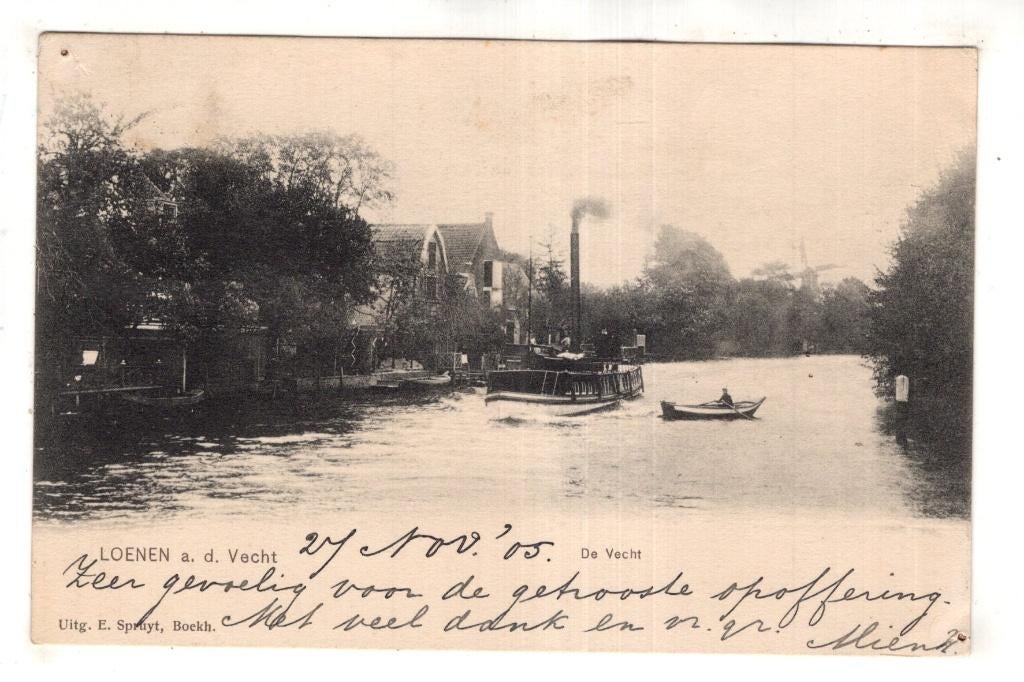 LOENEN a. d. Vecht 27 Nov. '05. De Vecht
Zeer gevoelig voor de getrooste opoffering.
Uitg. E. Spruyt, Boekh. Met veel dank en vr. gr.